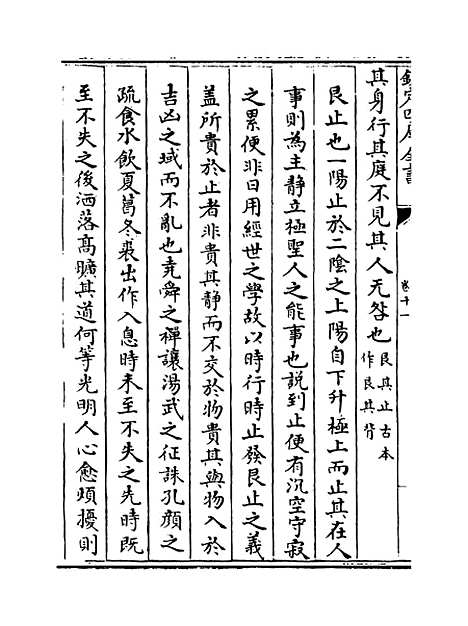 欽定四庫全書
卷十一
其身行其庭不見其人无咎也艮其止古本作艮其背
艮止也一陽止於二陰之上陽自下升極上而止其在人
事則為主靜立極聖人之能事也説到止便有沉空守寂
之累便非日用經世之學故以時行時止發艮止之義
盖所貴於止者非貴其靜而不交於物貴其與物入於
吉凶之域而不亂也堯舜之禪讓湯武之征誅孔顔之
疏食水飲夏葛冬裘出作入息時未至不失之先時既
至不失之後洒落高曠其道何等光明人心愈煩擾則